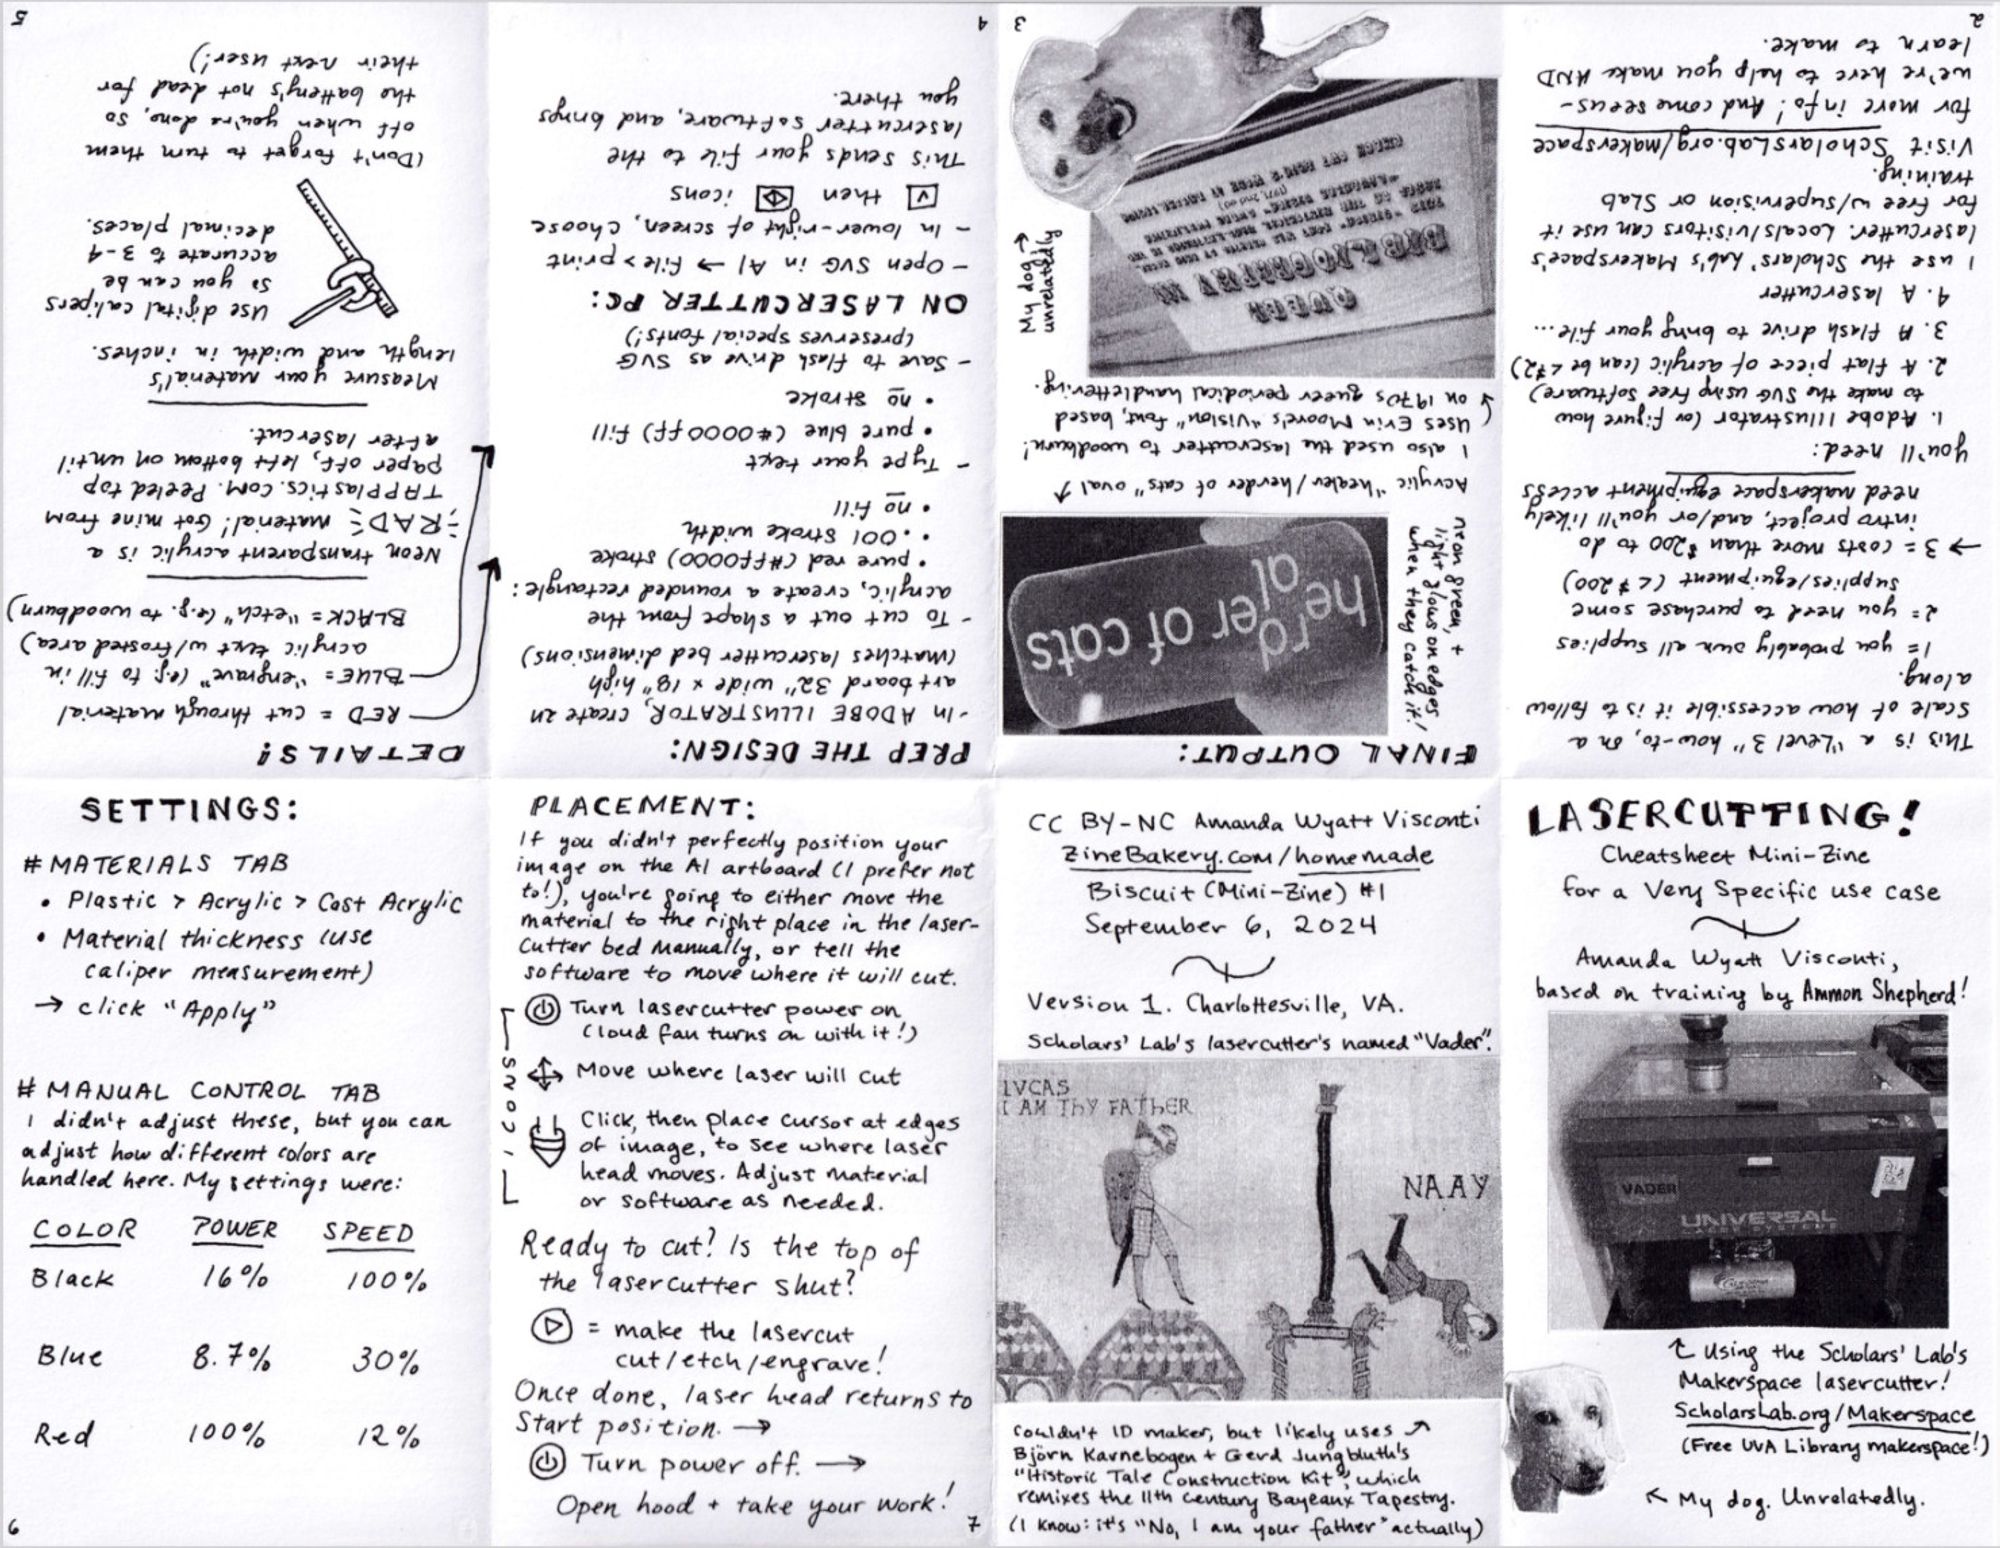 LASERCUTTING!
Cheatsheet Mini-Zine
for a Very Specific use case
Amanda Wyatt Visconti,
based on training by Ammon Shepherd!
VADER
UNIVERSAL
↑ Using the Scholars' Lab's
Makerspace lasercutter!
ScholarsLab.org/Makerspace
(Free UVA Library makerspace!)
← My dog. Unrelatedly.
This is a "Level 3" how-to, on a
scale of how accessible it is to follow
along.
1 = you probably own all supplies
2 = you need to purchase some
supplies/equipment (< $200)
→ 3 = costs more than $200 to do
intro project, and/or you'll likely
need makerspace equipment access
you'll need:
1. Adobe Illustrator (or figure how
to make the SVG using free software)
2. A flat piece of acrylic (can be < $2)
3. A flash drive to bring your file...
4. A lasercutter
I use the Scholars' Lab's Makerspace's
lasercutter. Locals/visitors can use it
for free w/supervision or SLab
training.
Visit ScholarsLab.org/makerspace
for more info! And come see us-
we're here to help you make AND
learn to make.
2
FINAL OUTPUT:
he rd al er of cats
neon green, +
light glows on edges
when they catch it!
Acrylic "healer/herder of cats" oval ↑
I also used the lasercutter to woodburn!
Uses Erin Moore's "Vision" font, based
on 1970s queer periodical handlettering.
QUEER
BIBLIOGRAPHY IN
My dog →
unrelatedly
3
PREP THE DESIGN:
- In ADOBE ILLUSTRATOR, create an
artboard 32" wide x 18" high
(matches lasercutter bed dimensions)
- To cut out a shape from the
acrylic, create a rounded rectangle:
• pure red (#ff0000) stroke
• .001 stroke width
• no fill
- Type your text
• pure blue (#0000ff) fill
• no stroke
- Save to flash drive as SVG
(preserves special fonts!)
ON LASERCUTTER PC:
- Open SVG in AI → File > print
- In lower-right of screen, choose
V then icons
This sends your file to the
lasercutter software, and brings
you there.
4
DETAILS!
RED = cut through material
BLUE = "engrave" (e.g. to fill in
acrylic text w/frosted area)
BLACK = "etch" (e.g. to woodburn)
Neon transparent acrylic is a
RAD material! Got mine from
TAPPlastics.com. Peeled top
paper off, left bottom on until
after lasercut.
Measure your material's
length and width in inches.
Use digital calipers
so you can be
accurate to 3-4
decimal places.
(Don't forget to turn them
off when you're done, so
the battery's not dead for
their next user!)
5
SETTINGS:
# MATERIALS TAB
• Plastic > Acrylic > Cast Acrylic
• Material thickness (use
caliper measurement)
→ click "Apply"
# MANUAL CONTROL TAB
I didn't adjust these, but you can
adjust how different colors are
handled here. My settings were:
COLOR POWER SPEED
Black 16% 100%
Blue 8.7% 30%
Red 100% 12%
6
PLACEMENT:
If you didn't perfectly position your
image on the AI artboard (I prefer not
to!), you're going to either move the
material to the right place in the laser-
cutter bed manually, or tell the
software to move where it will cut.
ICONS
Turn lasercutter power on
(loud fan turns on with it!)
Move where laser will cut
Click, then place cursor at edges
of image, to see where laser
head moves. Adjust material
or software as needed.
Ready to cut? Is the top of
the lasercutter shut?
= make the lasercut
cut/etch/engrave!
Once done, laser head returns to
Start position. →
Turn power off. →
Open hood + take your work!
7
CC BY-NC Amanda Wyatt Visconti
ZineBakery.com/homemade
Biscuit (Mini-Zine) #1
September 6, 2024
Version 1. Charlottesville, VA.
Scholars' Lab's lasercutter's named "Vader".
IVCAS
I AM THY FATHER
NAAY
Couldn't ID maker, but likely uses ↗
Björn Karnebogen + Gerd Jungbluth's
"Historic Tale Construction Kit", which
remixes the 11th century Bayeaux Tapestry.
(I know: it's "No, I am your father" actually)